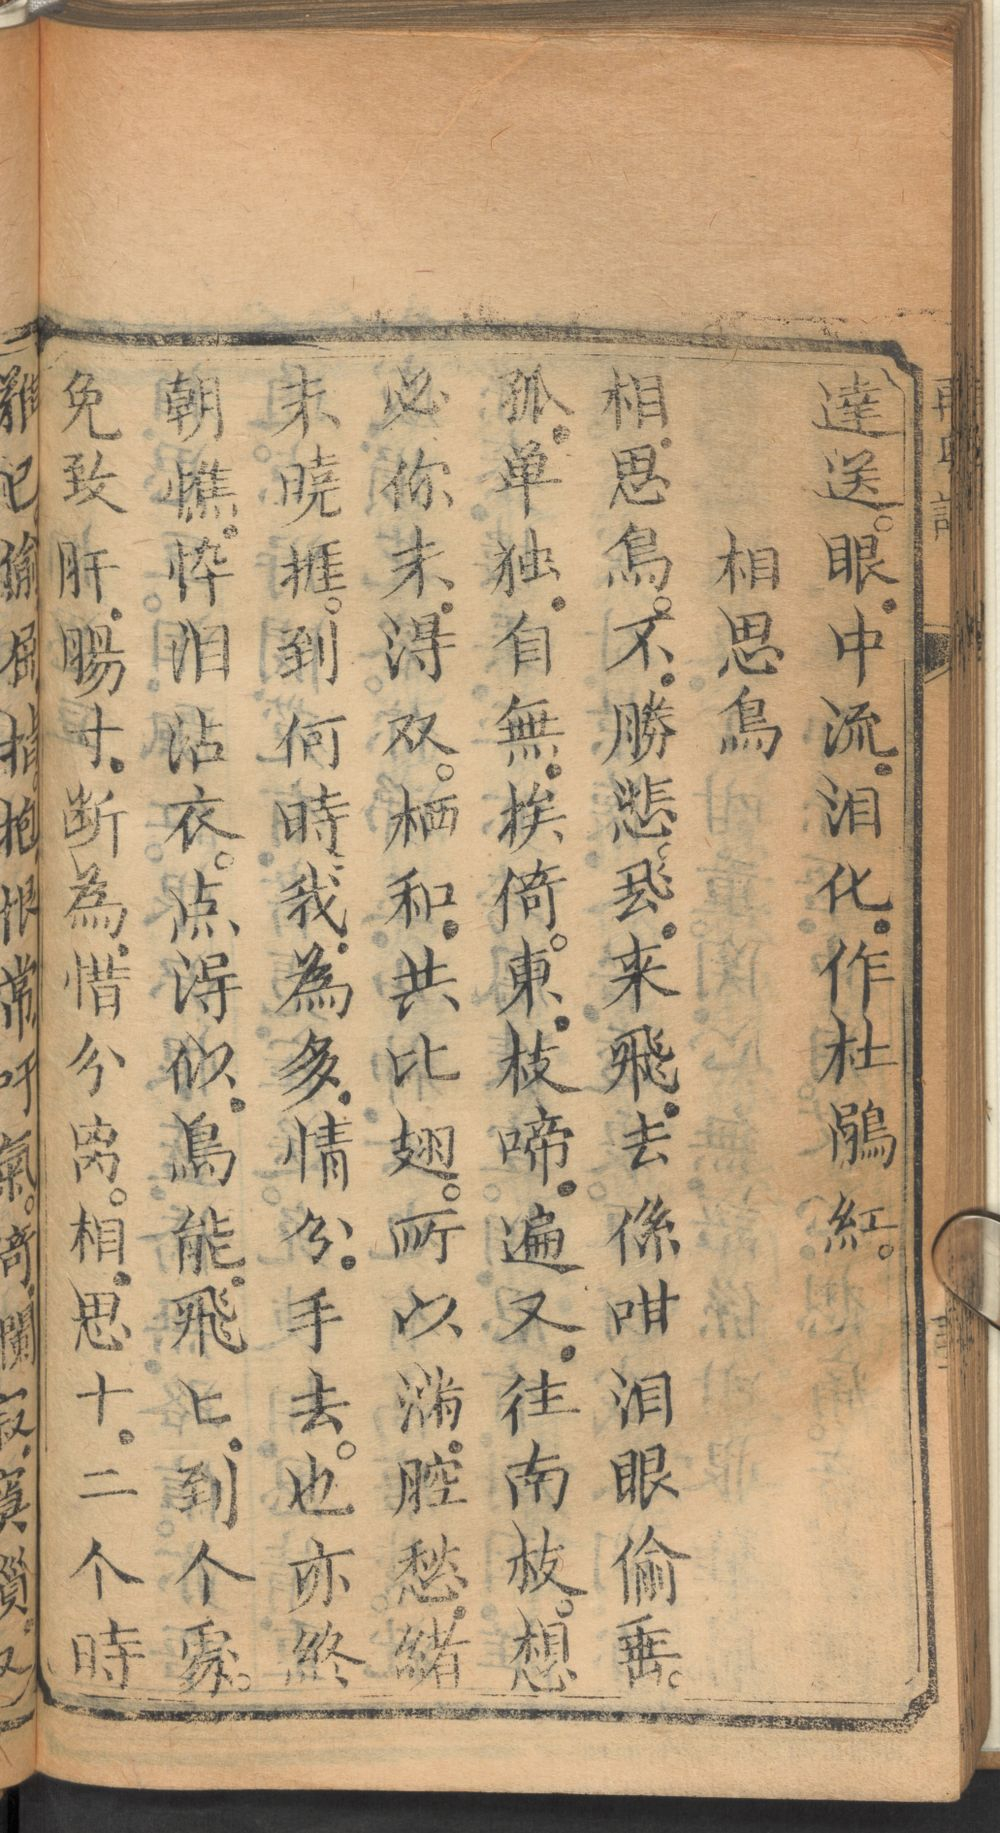 達送。眼中流泪化作杜鵑紅。
相思鳥
相思鳥。不勝悲。飛来飛去係咁泪眼偷垂。
孤单独自無挨倚。東枝啼遍又往南枝。想
必你未得双。栖和共比翅。所以滿腔愁緒
未曉捱。到何時。我為多情分手去。也亦終
朝憔悴泪沾衣。点得似鳥能飛飛到个處。
免致肝腸寸断為惜分离。相思十二个時
難記偷屈指。抱恨常吁氣。倚闌寂寞鬢又